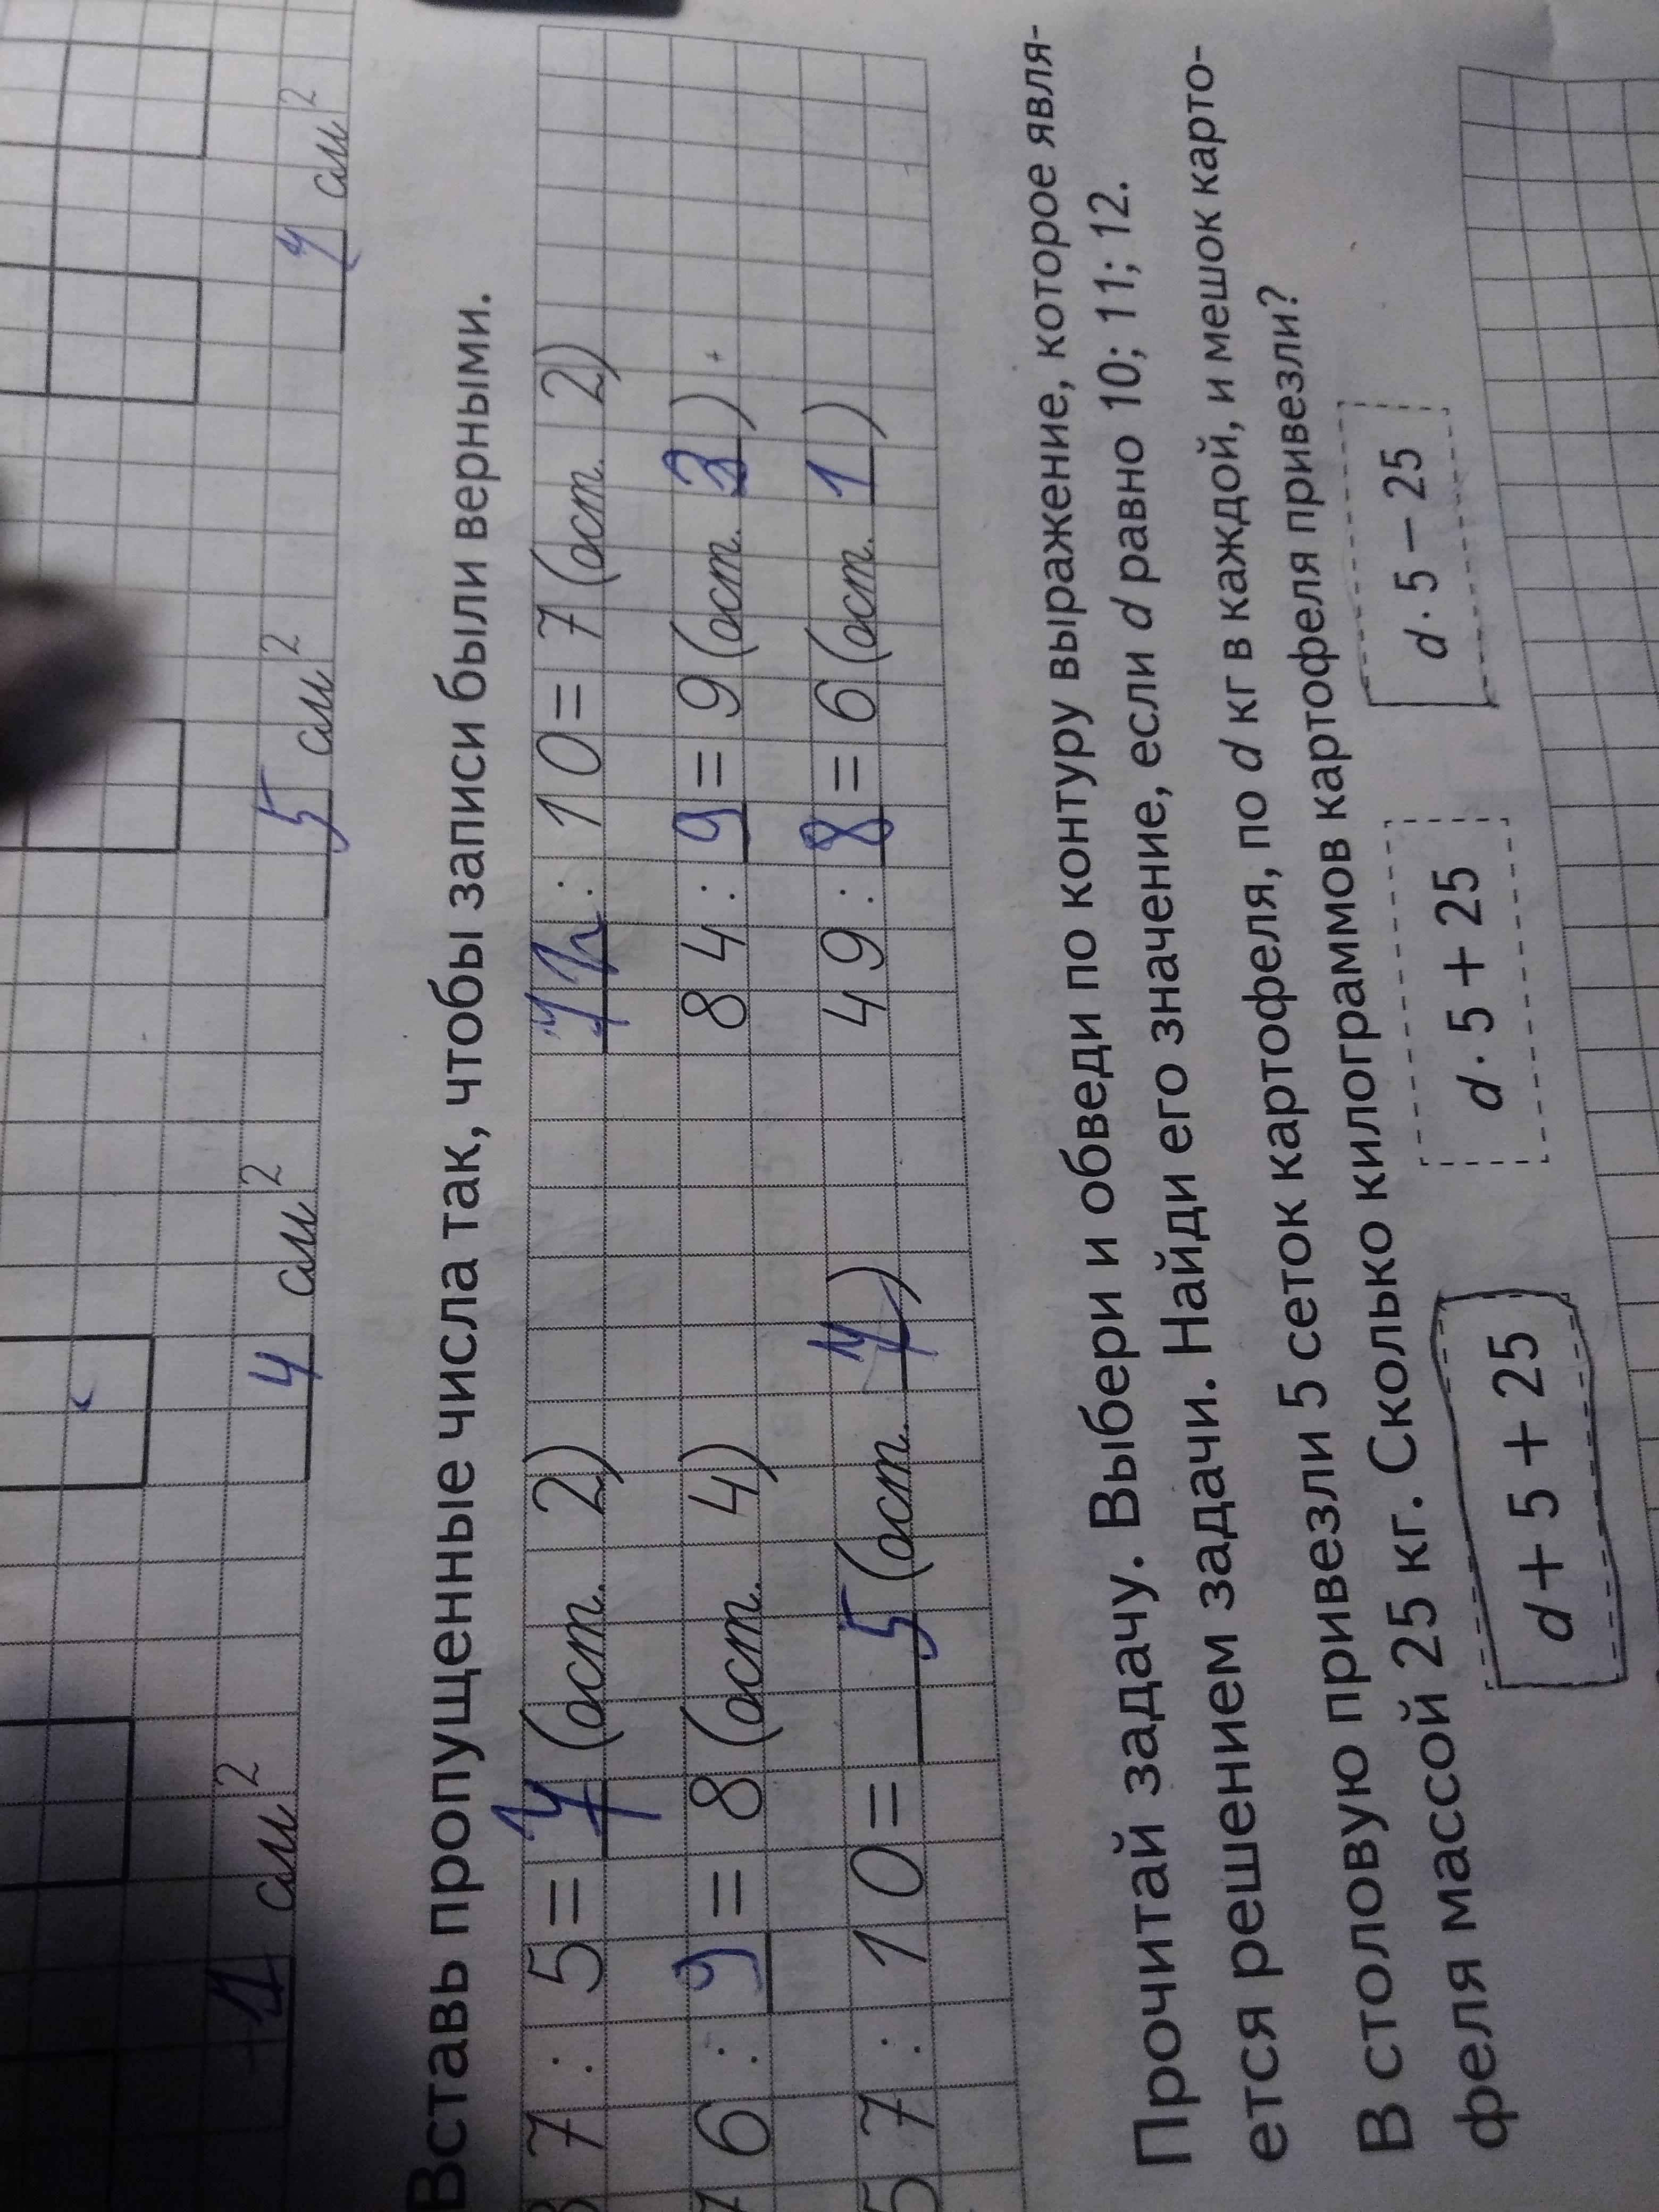 1 см² 4 см² 5 см² 7 см²
Вставь пропущенные числа так, чтобы записи были верными.
37 : 5 = 7 (ост. 2) 72 : 10 = 7 (ост. 2)
76 : 9 = 8 (ост. 4) 84 : 9 = 9 (ост. 3)
57 : 10 = 5 (ост. 7) 49 : 8 = 6 (ост. 1)
Прочитай задачу. Выбери и обведи по контуру выражение, которое явля-
ется решением задачи. Найди его значение, если d равно 10; 11; 12.
В столовую привезли 5 сеток картофеля, по d кг в каждой, и мешок карто-
феля массой 25 кг. Сколько килограммов картофеля привезли?
d + 5 + 25 d · 5 + 25 d · 5 − 25